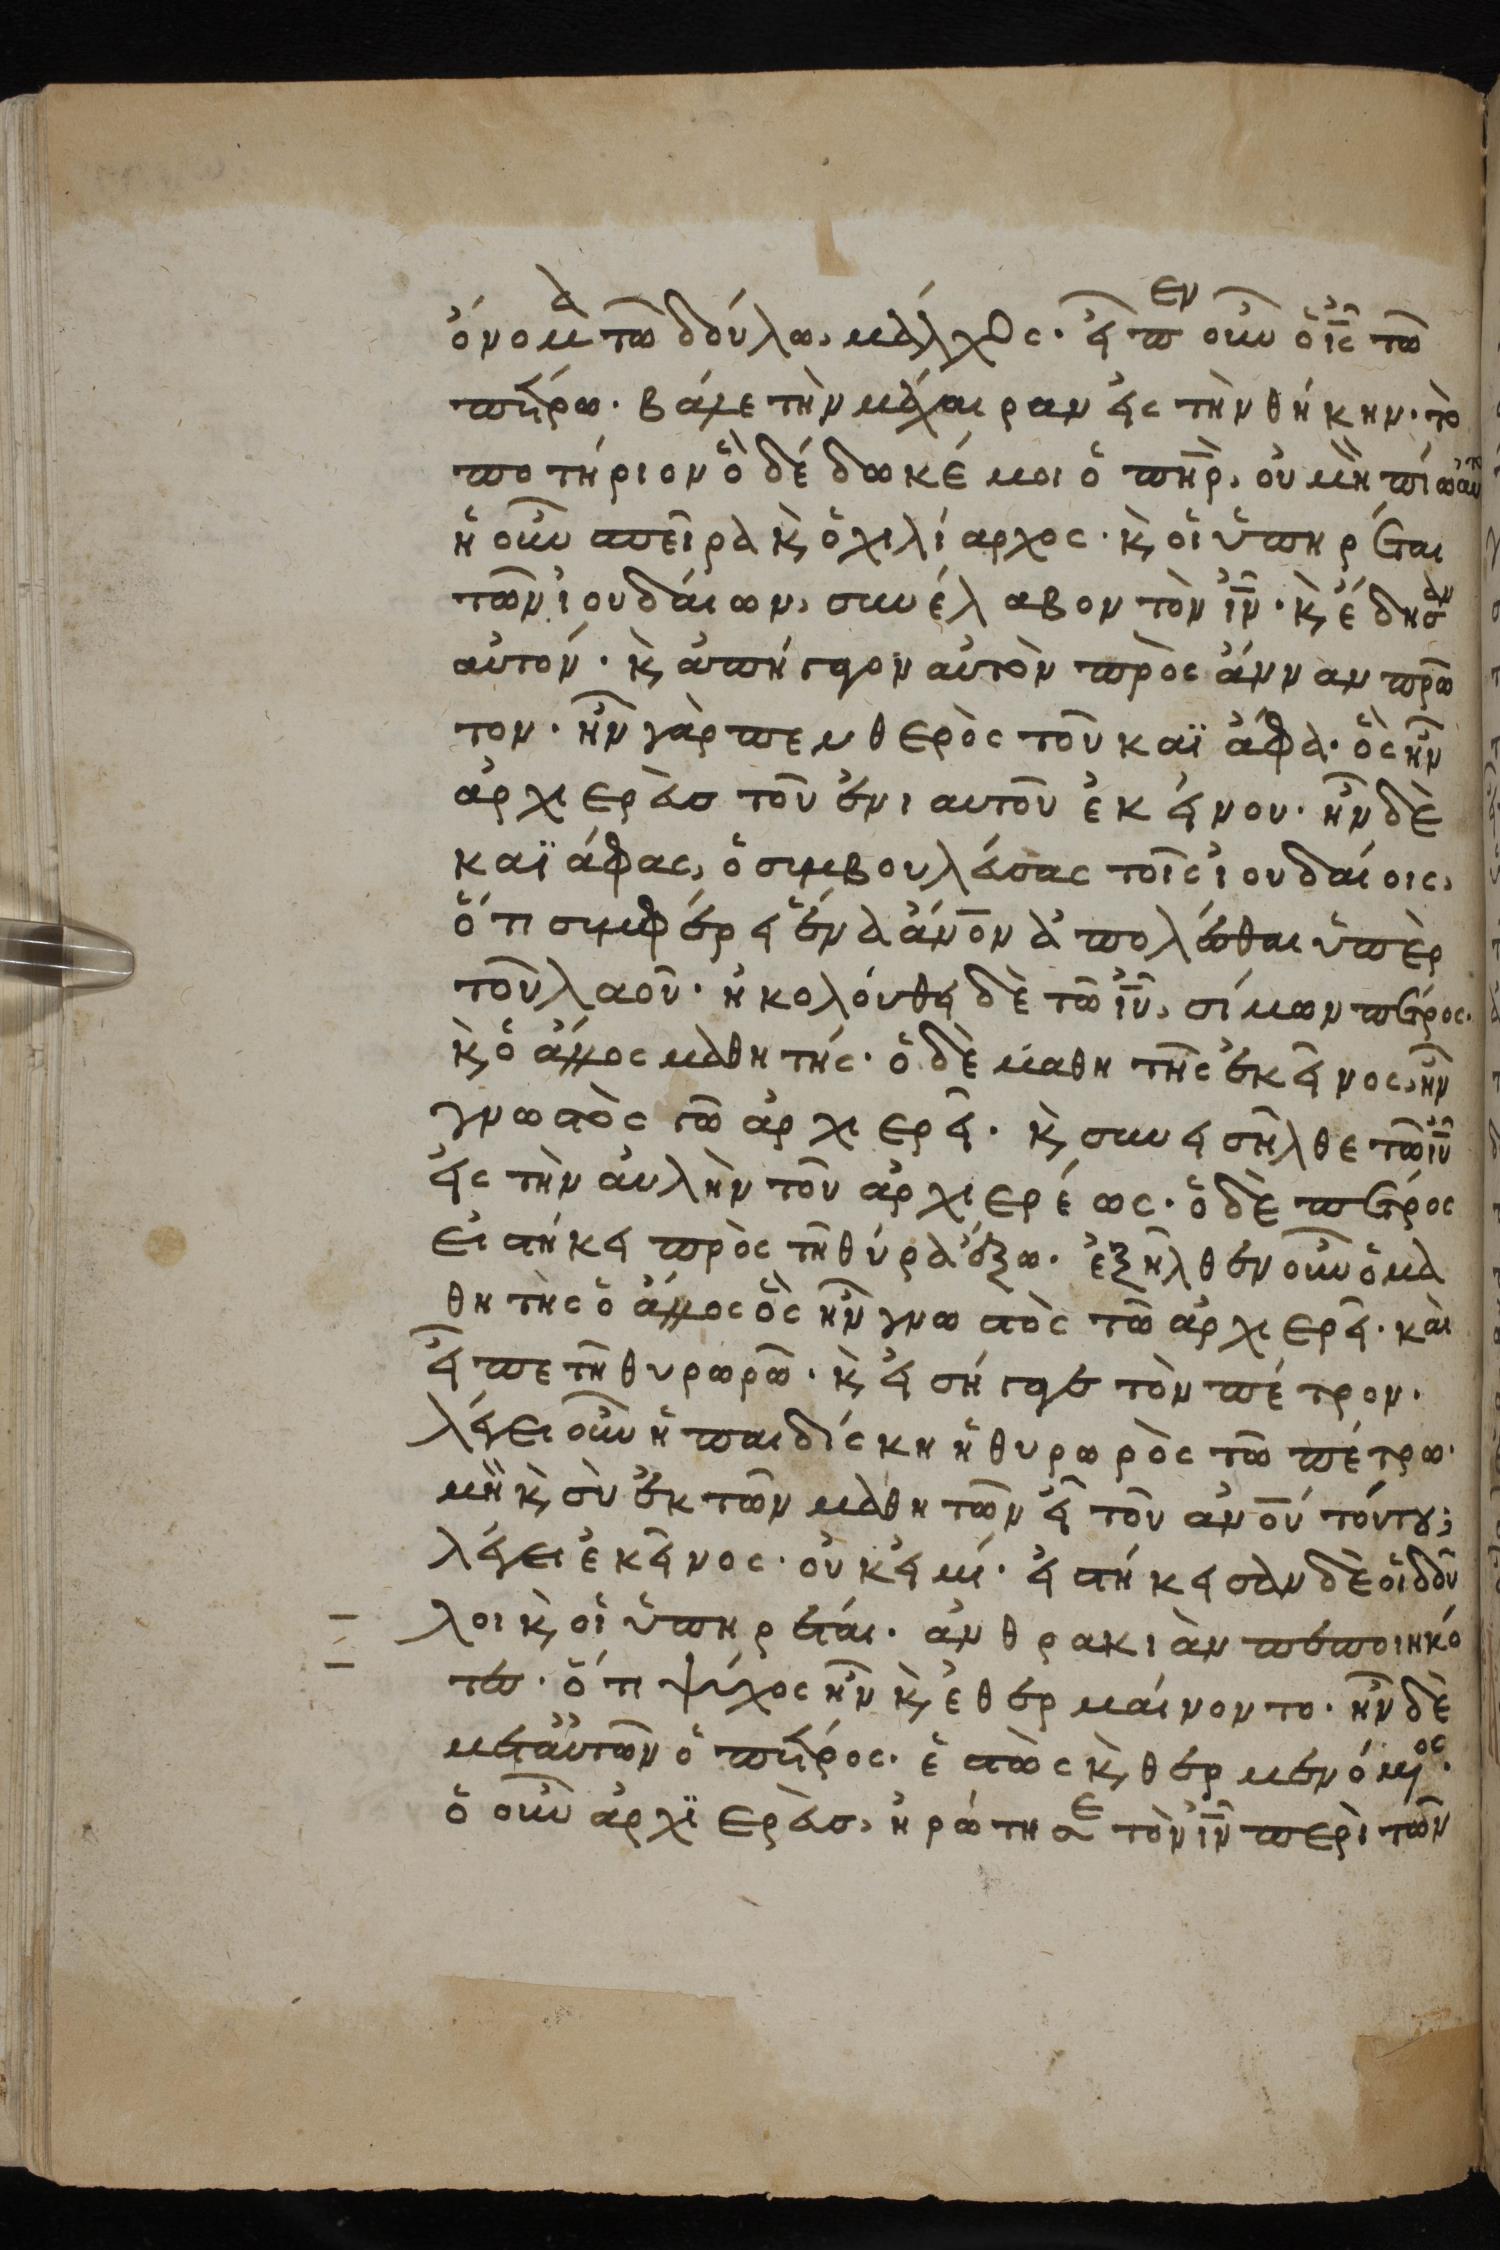 ὄνομα τῶ δούλω, μάλχος· εἶπεν οὖν ὁ ἰς τῶ
πέτρω· βάλε τὴν μάχαιραν εἰς τὴν θήκην· τὸ
ποτήριον ὃ δέδωκέ μοι ὁ πηρ, οὐ μὴ πίω αὐτ
ἡ οὖν σπεῖρα κ ὁ χιλίαρχος· κ οἱ ὑπηρέται
τῶν ἰουδαίων, συνέλαβον τὸν ἰν· κ ἔδησαν
αὐτόν· κ ἀπήγαγον αὐτὸν πρὸς ἄνναν πρῶ
τον· ἦν γὰρ πενθερὸς τοῦ καϊάφα· ὃς ἦν
ἀρχιερεὺς τοῦ ἐνιαυτοῦ ἐκείνου· ἦν δὲ
καϊάφας, ὁ συμβουλεύσας τοῖς ἰουδαίοις,
ὅτι συμφέρει ἕνα ἀνον ἀπολέσθαι ὑπὲρ
τοῦ λαοῦ· ἠκολούθει δὲ τῶ ἰυ, σίμων πέτρος·
κ ὁ ἄλλος μαθητής· ὁ δὲ μαθητὴς ἐκεῖνος, ἦν
γνωστὸς τῶ ἀρχιερεῖ· κ συνεισῆλθε τῶ ἰυ
εἰς τὴν αὐλὴν τοῦ ἀρχιερέως· ὁ δὲ πέτρος
εἱστήκει πρὸς τῆ θύρα ἔξω· ἐξῆλθεν οὖν ὁ μα
θητὴς ὁ ἄλλος ὃς ἦν γνωστὸς τῶ ἀρχιερεῖ· καὶ
εἶπε τῆ θυρωρῶ· κ εἰσήγαγε τὸν πέτρον·
λέγει οὖν ἡ παιδίσκη ἡ θυρωρὸς τῶ πέτρω·
μὴ κ σὺ ἐκ τῶν μαθητῶν εἶ τοῦ ἀνου τούτου;
λέγει ἐκεῖνος· οὐκ εἰμί· εἱστήκεισαν δὲ οἱ δοῦ
λοι κ οἱ ὑπηρέται· ἀνθρακιὰν πεποιηκό
τες· ὅτι ψύχος ἦν κ ἐθερμαίνοντο· ἦν δὲ
μετ αὐτῶν ὁ πέτρος· ἑστὼς κ θερμενόμενος·
ὁ οὖν ἀρχϊερεὺς, ἠρώτησε τὸν ἰν περὶ τῶν